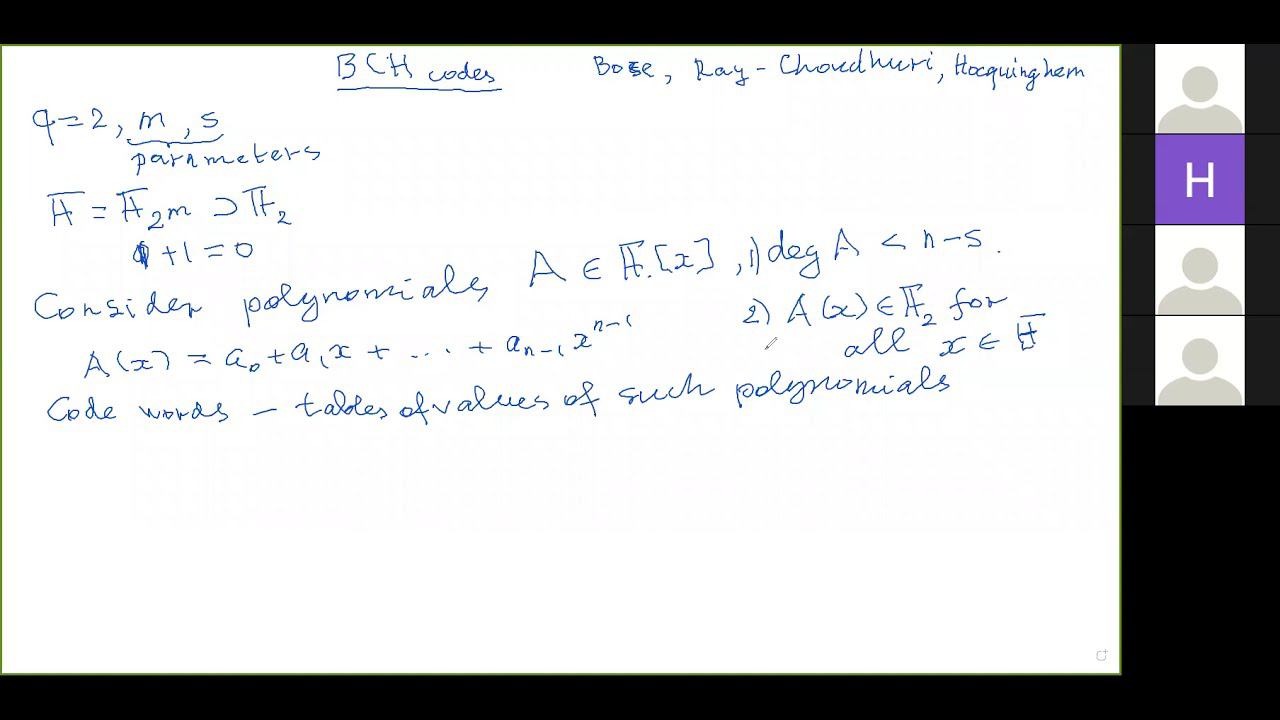 BCH codes Bose, Ray-Choudhuri, Hocquinghem
q=2, m, s
parameters
𝔽 = 𝔽_{2^m} ⊃ 𝔽_2
1+1=0
Consider polynomials A ∈ 𝔽[x], 1) deg A < n-s.
2) A(x) ∈ 𝔽_2 for
all x ∈ 𝔽
A(x) = a_0 + a_1x + ... + a_{n-1} x^{n-1}
Code words - tables of values of such polynomials
H